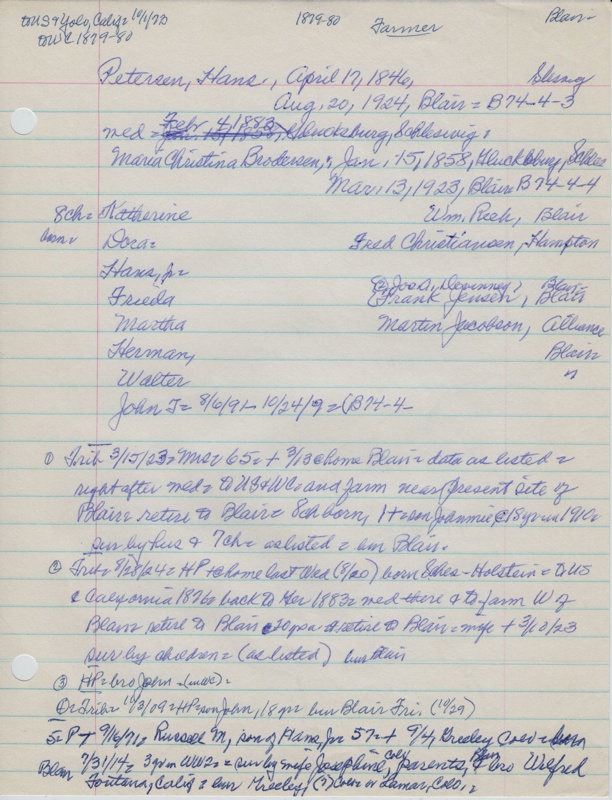 to US & Yolo, Calif = 10/1/73 1879-80 Farmer Blair-
to WC 1879-80
Petersen, Hans, April 17, 1846,
Aug. 20, 1924, Blair = B74-4-3
med = Febr. 4/1883, Glucksburg, Schleswig:
Maria Christina Brodersen, Jan. 15, 1858, Glucksburg, Schles
Mar. 13, 1923, Blair = B74-4-4
8ch = Katherine Wm. Rech, Blair
born = Dora = Fred Christiansen, Hampton
Hans, Jr =
Frieda Frank Jensen, Blair
Martha Martin Jacobson, Alliance
Herman, Blair
Walter "
John T = 8/6/91 - 10/24/9 = (B74-4-
① Trib 3/15/23 = Mrs = 65 = + 3/13 @ home Blair = data as listed =
right after med = to US & WC = and farm near present site of
Blair = retire to Blair = 8ch born, 1 + = son Johnnie @ 18 yr in 1910 =
sur by hus & 7ch = as listed = bur Blair.
② Trib = 8/28/24 = HP + @ home last Wed (8/20) born Schles-Holstein = to US
& California 1876 = back to Ger 1883 = med there & to farm W of
Blair = retire to Blair = wife + 3/10/23
sur by children = (as listed) bur Blair
③ HP = bro John - (in WC) =
Trib = 10/3/09 = HP = son John, 18 yr = bur Blair Fri. (10/29)
5 = P + 9/16/71 = Russell M, son of Hans, Jr = 57 = + 9/4, Greeley Colo = born
Blair 7/31/14 = 3 yr in WW2 = sur by wife Josephine, Colo, parents, Blair & bro Wilfred
Fontana, Calif = bur Greeley, (?) Colo = or Lamar, Colo,